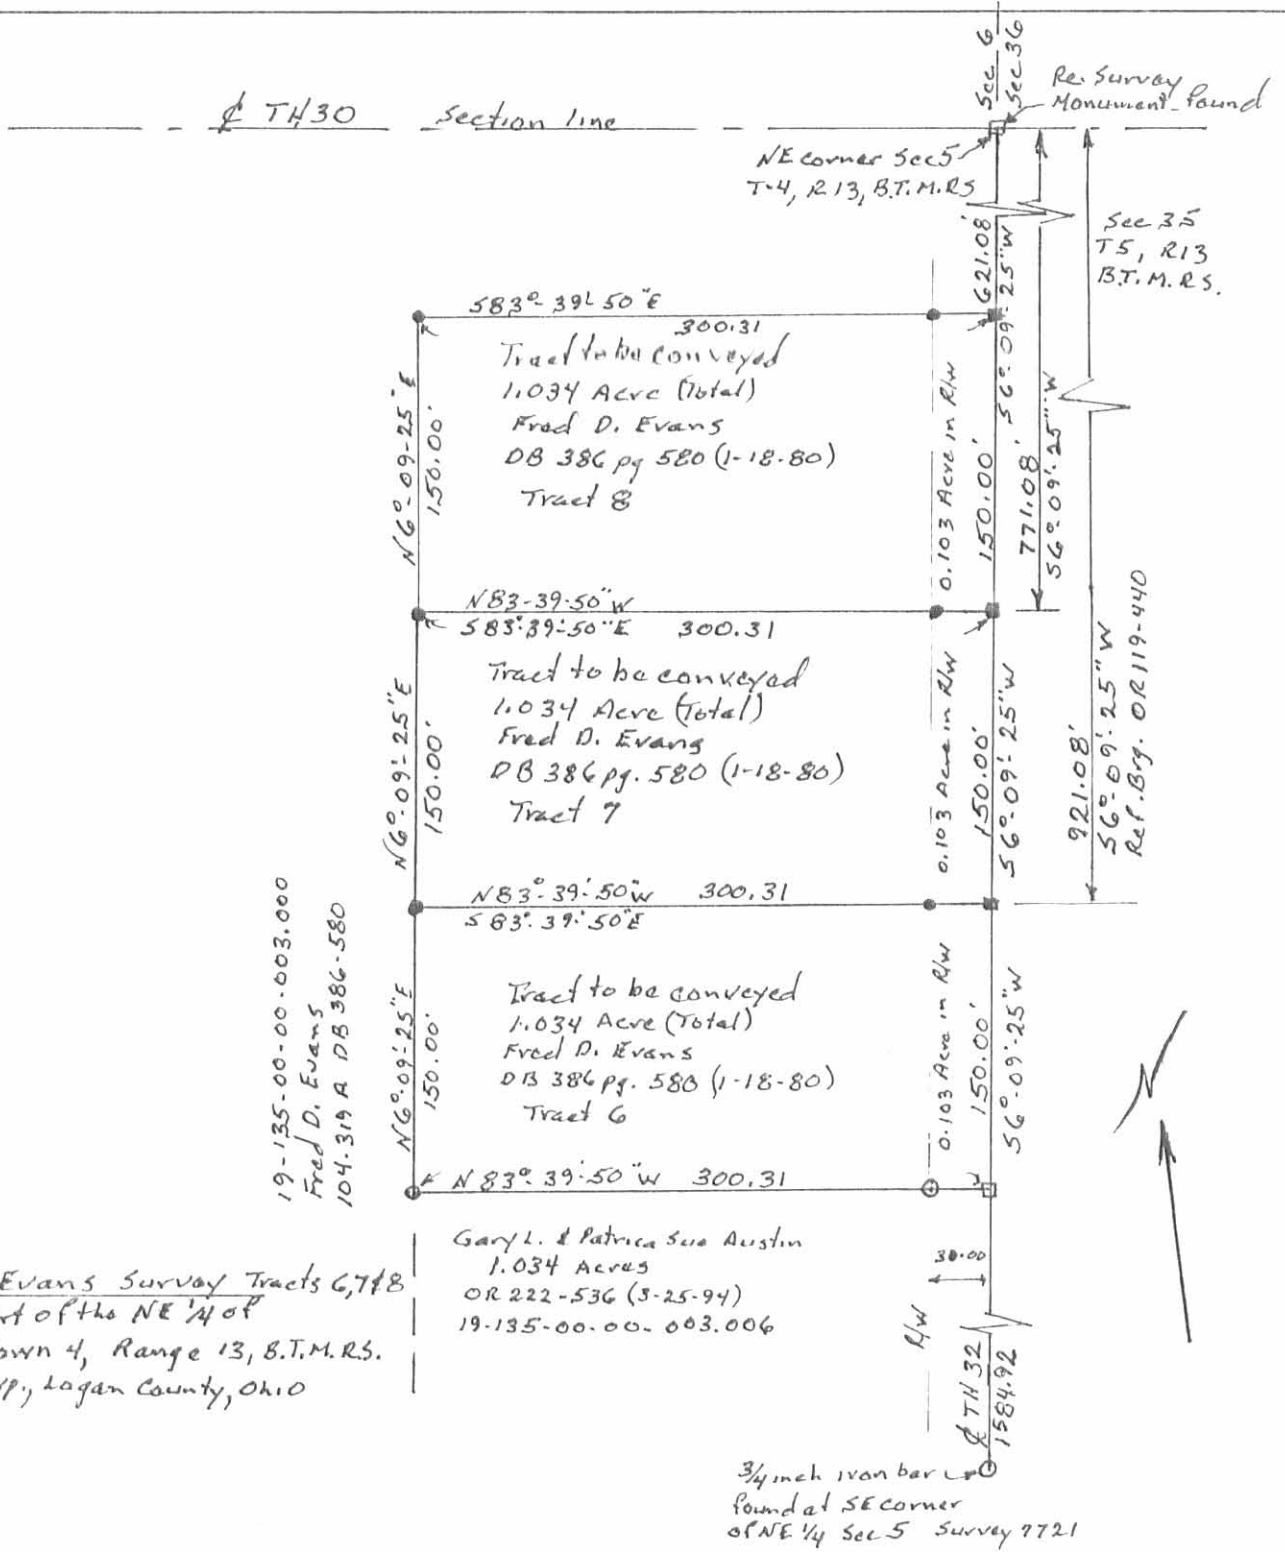 Sec 6
Sec 36
Re. Survey
Monument found
₵ TH30 Section line
NE corner Sec 5
T-4, R 13, B.T.M.RS
Sec 35
T5, R13
B.T.M.RS.
621.08'
S6°-09'-25"W
S83°-39'-50"E
300.31
Tract to be conveyed
1.034 Acre (Total)
Fred D. Evans
DB 386 pg 580 (1-18-80)
Tract 8
N6°-09-25"E
150.00'
0.103 Acre in R/W
150.00'
771.08'
S6°-09'-25"W
N83-39-50"W
S83°-39'-50"E 300.31
Tract to be conveyed
1.034 Acre (Total)
Fred D. Evans
DB 386 pg. 580 (1-18-80)
Tract 7
N6°-09'-25"E
150.00'
0.103 Acre in R/W
150.00'
S6°-09'-25"W
921.08'
S6°-09'-25"W
Ref. Brg. OR119-440
N83°-39'-50"W 300.31
S83°-39'-50"E
Tract to be conveyed
1.034 Acre (Total)
Fred D. Evans
DB 386 pg. 580 (1-18-80)
Tract 6
N6°-09'-25"E
150.00'
0.103 Acre in R/W
150.00'
S6°-09'-25"W
19-135-00-00-003.000
Fred D. Evans
104.319 A DB 386-580
N
N 83°-39'-50"W 300.31
Gary L. & Patrica Sue Austin
1.034 Acres
OR 222-536 (3-25-94)
19-135-00-00-003.006
30.00
R/W
₵ TH 32
1584.92
Evans Survey Tracts 6,7&8
rt of the NE 1/4 of
own 4, Range 13, B.T.M.RS.
p., Logan County, Ohio
3/4 inch iron bar
found at SE corner
of NE 1/4 Sec 5 Survey 7721